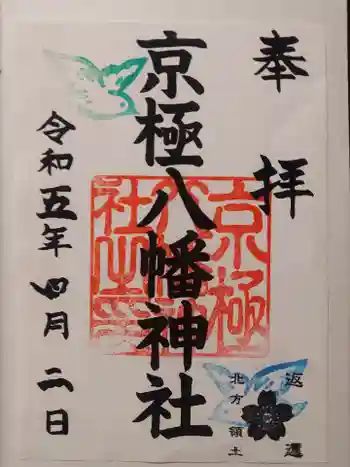 奉拝
京極八幡神社
令和五年四月二日
京極八幡神社之印
返還
北方領土